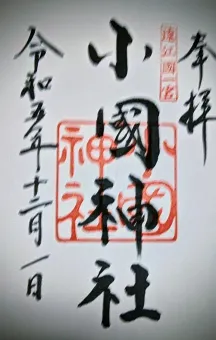 奉拝
遠江國一宮
小國神社
小國神社
令和五年十二月一日